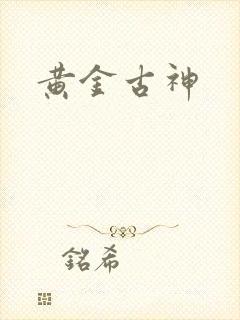 黄金古神
銘希